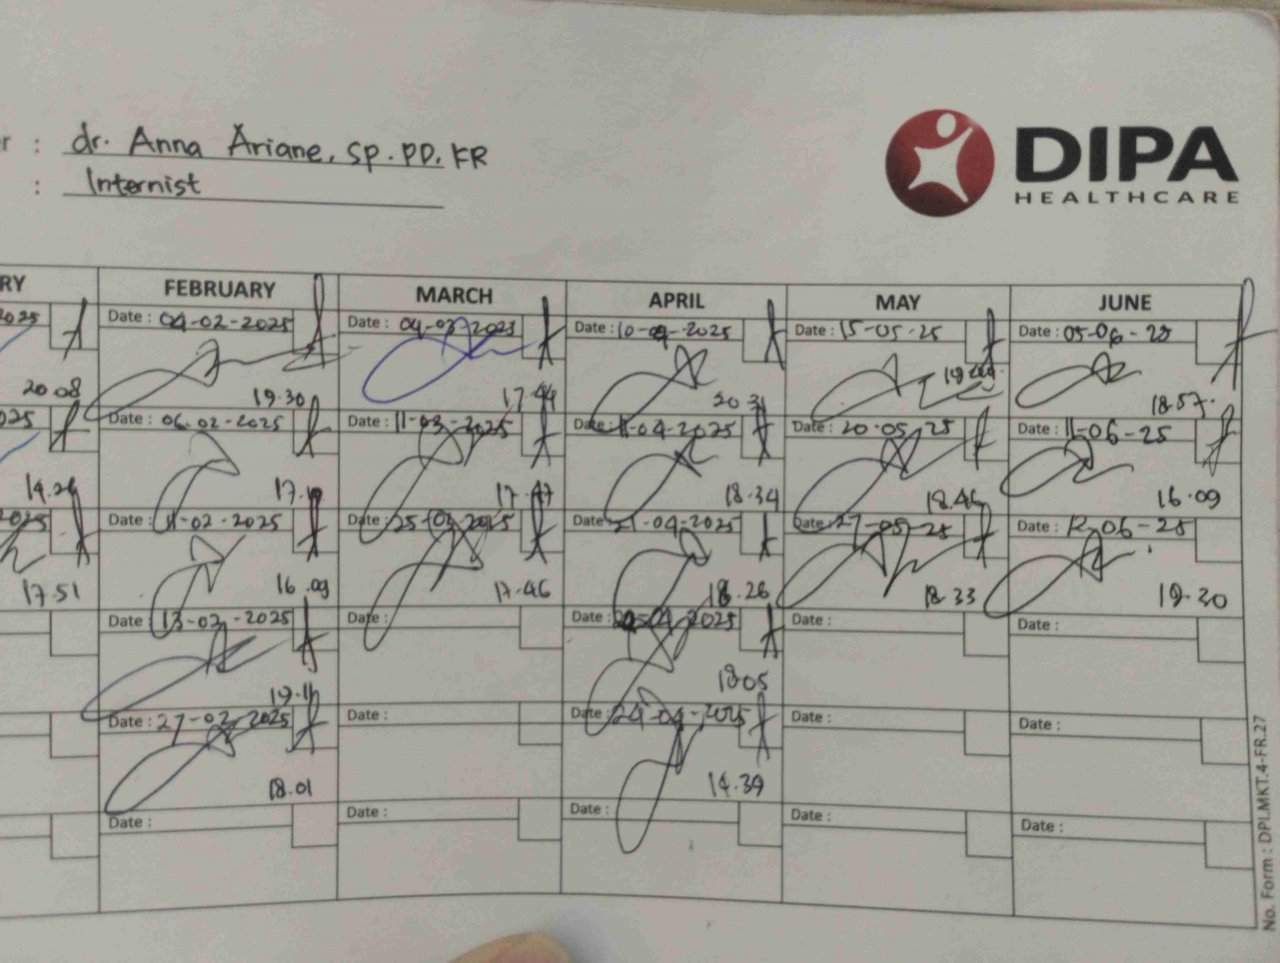 r : dr. Anna Ariane, Sp.PD, KR
: Internist
DIPA
HEALTHCARE
RY FEBRUARY MARCH APRIL MAY JUNE
2025 Date : 04-02-2025 Date : 04-03-2025 Date : 10-04-2025 Date : 15-05-25 Date : 05-06-25
20.08 19.30 17.44 20.31 18.57
025 Date : 06.02-2025 Date : 11-03-2025 Date : 11-04-2025 Date : 20-05-25 Date : 11-06-25
17.47 18.34 16.09
2025 Date : 11-02-2025 Date : 25-03-2025 Date : 21-04-2025 Date : 27-05-25 Date : 12-06-25
17.51 16.09 17.46 18.26 18.33 19.30
Date : 13-02-2025 Date : Date : 2025 Date : Date :
19.11 18.05
Date : 27-02-2025 Date : Date : 24-04-2025 Date : Date :
18.01 14.39
Date : Date : Date : Date : Date :
No. Form : DPLMKT.4-FR.27